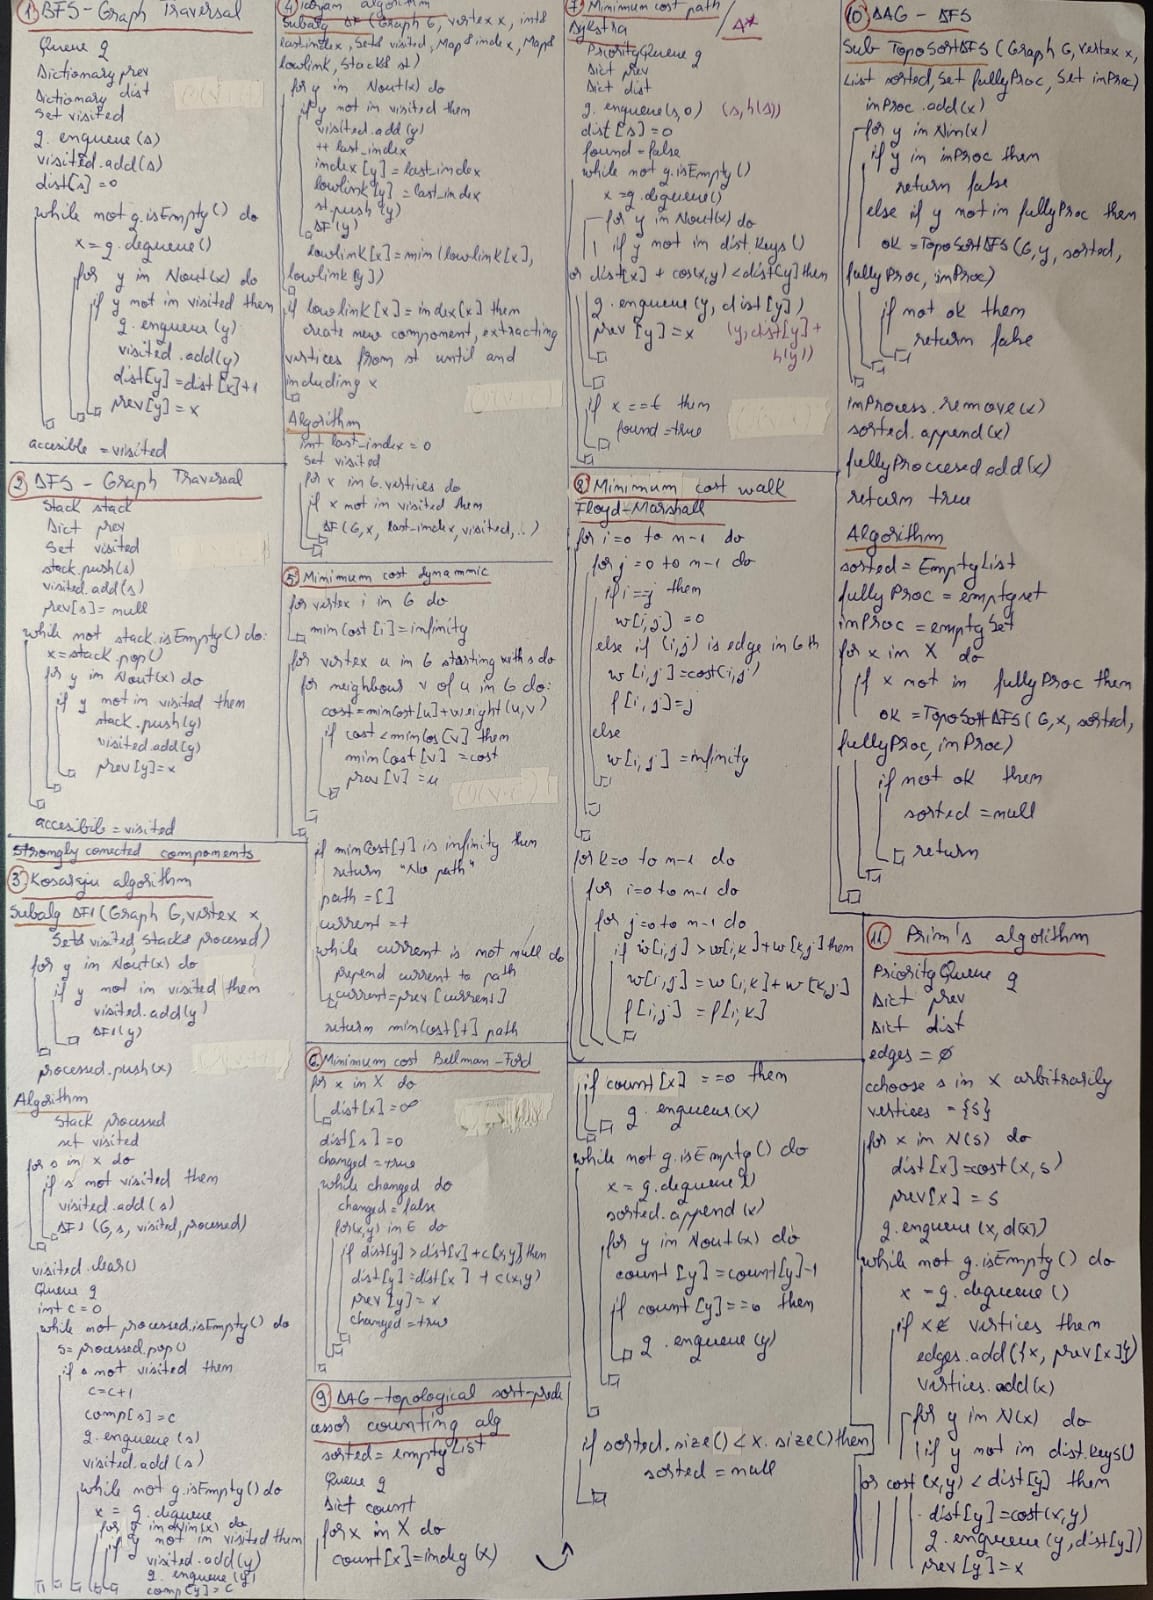 1 BFS - Graph Traversal
Queue q
Dictionary prev
Dictionary dist
Set visited
q. enqueue (s)
visited.add(s)
dist[s]=0
while not q.isEmpty() do
x=q.dequeue()
for y in Nout(x) do
if y not in visited then
q. enqueue (y)
visited.add(y)
dist[y]=dist[x]+1
prev[y]=x
accesible = visited
2 DFS - Graph Traversal
Stack stack
Dict prev
Set visited
stack.push(s)
visited.add(s)
prev[s]=null
while not stack.isEmpty() do:
x=stack.pop()
for y in Nout(x) do
if y not in visited then
stack.push(y)
visited.add(y)
prev[y]=x
accesibile = visited
Strongly conected components
3 Kosaraju algorithm
Subalg DF1 (Graph G, vertex x,
Set& visited, Stack& processed)
for y in Nout(x) do
if y not in visited them
visited.add(y)
DF1(y)
processed.push(x)
Algorithm
Stack processed
set visited
for s in X do
if s not visited them
visited.add(s)
DF1 (G,s, visited, processed)
visited.clear()
Queue q
int c=0
while not processed.isEmpty() do
s=processed.pop()
if s not visited them
c=c+1
comp[s]=c
q.enqueue (s)
visited.add(s)
while not q.isEmpty() do
x = q.dequeue
for y in Nin(x) do
if y not in visited them
visited.add(y)
q. enqueue (y)
comp[y]=c
4 Tarjan algorithm
Subalg DF (Graph G, vertex x, int&
last_index, Set& visited, Map& index, Map&
lowlink, Stack& st)
for y in Nout(x) do
if y not in visited them
visited.add(y)
++ last_index
index[y]=last_index
lowlink[y]=last_index
st.push (y)
DF(y)
lowlink[x]=min (lowlink[x],
lowlink[y])
if lowlink[x]=index[x] them
create new component, extracting
vertices from st until and
including x
Algorithm
int last_index = 0
Set visited
for x in G.vertices do
if x not in visited them
DF(G,x, last_index, visited,..)
5 Minimum cost dynammic
for vertex i in G do
mincost[i]=infinity
for vertex u in G starting with s do
for neighbour v of u in G do:
cost=mincost[u]+weight(u,v)
if cost<mincos[v] them
mincost[v] =cost
prev[v]=u
if mincost[t] is infinity then
return "No path"
path=[]
current=t
while current is not null do
prepend current to path
current=prev[current]
return mincost[t] path
6 Minimum cost Bellman-Ford
for x in X do
dist[x]=∞
dist[s]=0
changed=true
while changed do
changed=false
for(x,y) in E do
if dist[y]>dist[x]+c[x,y] then
dist[y]=dist[x] + c(x,y)
prev[y]=x
changed=true
9 DAG-topological sort-prede
cessor counting alg
sorted= empty List
Queue q
Dict count
for x in X do
count[x]=indeg(x)
7 Minimum cost path
Dijkstra / A*
PriorityQueue q
Dict prev
Dict dist
q. enqueue(s,0) (s,h(s))
dist[s]=0
found=false
while not q.isEmpty()
x=q.dequeue()
for y in Nout(x) do
if y not in dist.keys()
or dist[x] + cos(x,y) <dist[y] then
q. enqueue(y, dist[y])
prev[y]=x (y,dist[y]+
h(y))
if x ==t them
found=true
8 Minimum cost walk
Floyd-Marshall
for i=0 to n-1 do
for j=0 to n-1 do
if i==j them
w[i,j]=0
else if (i,j) is edge in G th
w[i,j]=cost(i,j)
f[i,j]=j
else
w[i,j]=infinity
for k=0 to n-1 do
for i=0 to n-1 do
for j=0 to n-1 do
if w[i,j]>w[i,k]+w[k,j] them
w[i,j]=w[i,k]+w[k,j]
f[i,j]=f[i,k]
if count[x]==0 then
q. enqueue(x)
while not q.isEmpty() do
x=q.dequeue()
sorted.append(x)
for y in Nout(x) do
count[y]=count[y]-1
if count[y]==0 then
q. enqueue(y)
if sorted.size()<X.size() then
sorted = null
10 DAG - DFS
Sub TopoSortDFS (Graph G, vertex x,
List sorted, Set fullyProc, Set inProc)
inProc.add(x)
for y in Nin(x)
if y in inProc them
return false
else if y not in fullyProc them
ok=TopoSortDFS(G,y, sorted,
fullyProc, inProc)
if not ok them
return false
inProcess.remove(x)
sorted.append(x)
fullyProccesed.add(x)
return true
Algorithm
sorted=EmptyList
fullyProc=emptyset
inProc=empty Set
for x in X do
if x not in fullyProc them
ok=TopoSortDFS(G,x, sorted,
fullyProc, inProc)
if not ok them
sorted=null
return
11 Prim's algorithm
PriorityQueue q
Dict prev
Dict dist
edges=ø
cchoose s in X arbitrarily
vertices = {s}
for x in N(s) do
dist[x]=cost(x,s)
prev[x]=s
q. enqueue (x,d(x))
while not q.isEmpty() do
x = q.dequeue()
if x∉ vertices them
edges.add({x, prev[x]})
vertices.add(x)
for y in N(x) do
if y not in dist.keys()
or cost(x,y)<dist[y] them
dist[y]=cost(x,y)
q.enqueue(y,dist[y])
prev[y]=x